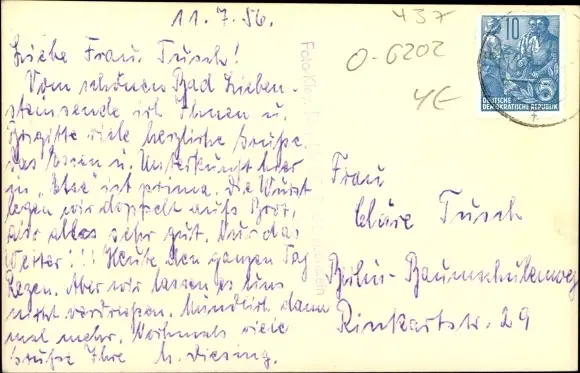 11.7.56.
Liebe Frau Tusch!
Vom schönen Bad Lieben-
stein sende ich Ihnen u.
Brigitte viele herzliche Grüße.
Das Essen u. Unterkunft hier
in „ " ist prima. Die Wurst
legen wir doppelt aufs Brot,
also alles sehr gut. Nur das
Wetter!!! Heute den ganzen Tag
Regen. Aber wir lassen es uns
nicht verdrießen. Mündlich dann
mal mehr. Nochmals viele
Grüße Ihre M. Diesing.
437
O-6202
4E
10
DEUTSCHE
DEMOKRATISCHE REPUBLIK
5
Frau
Cläre Tusch
Berlin-Baumschulenweg
Rinkartstr. 29
Foto